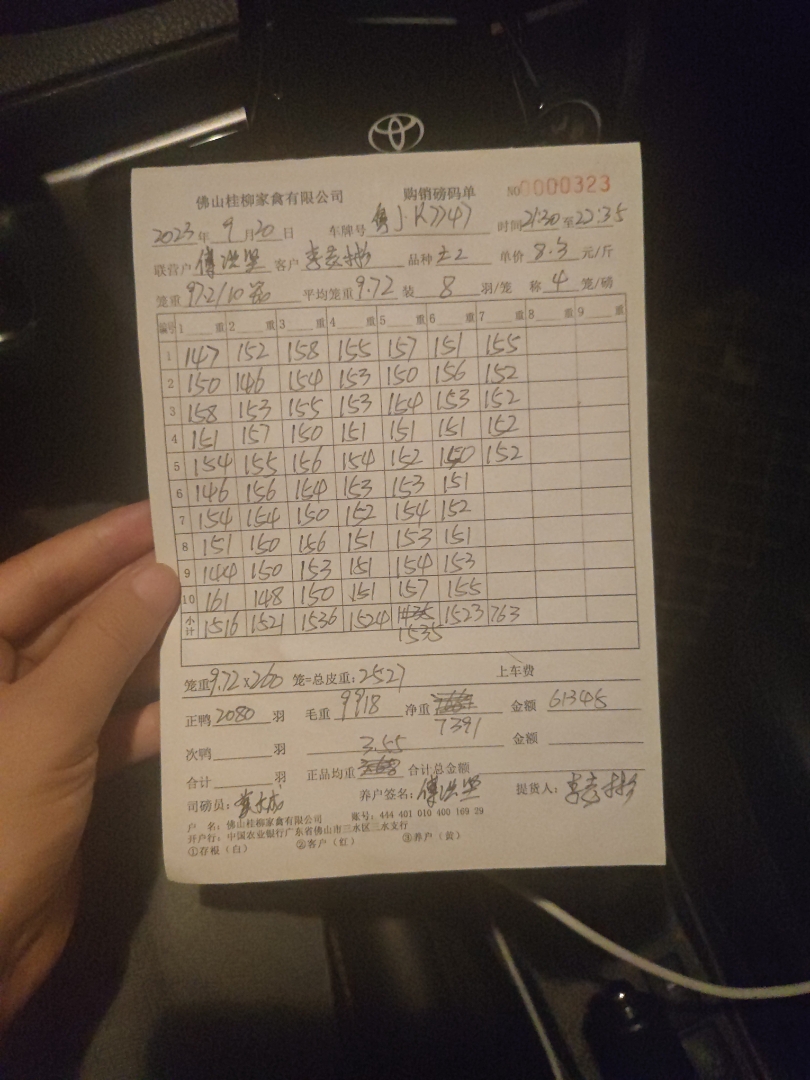 佛山桂柳家禽有限公司 购销磅码单 NO 0000323
2023年 9月20日 车牌号 粤J·K7747 时间21:30至22:35
联营户 傅洪坚 客户 李 彬 品种 土2 单价 8.3 元/斤
笼重 97.2/10笼 平均笼重 9.72 装 8 羽/笼 称 4 笼/磅
编号 1 重 2 重 3 重 4 重 5 重 6 重 7 重 8 重 9 重
1 147 152 158 155 157 151 155
2 150 146 154 153 150 156 152
3 158 153 155 153 154 153 152
4 151 157 150 151 151 151 152
5 154 155 156 154 152 150 152
6 146 156 154 153 153 151
7 154 154 150 152 154 152
8 151 150 156 151 153 151
9 144 150 153 151 154 153
10 161 148 150 151 157 155
小计 1516 1521 1536 1524 1435 1523 763
1535
笼重9.72×260 笼=总皮重:2527 上车费
正鸭 2080 羽 毛重 9918 净重 金额 61345
7391
次鸭 羽 3.55 金额
合计 羽 正品均重 合计总金额
司磅员: 养户签名: 傅洪坚 提货人: 李 彬
户 名: 佛山桂柳家禽有限公司 账号: 444 401 010 400 169 29
开户行: 中国农业银行广东省佛山市三水区三水支行
①存根（白） ②客户（红） ③养户（黄）